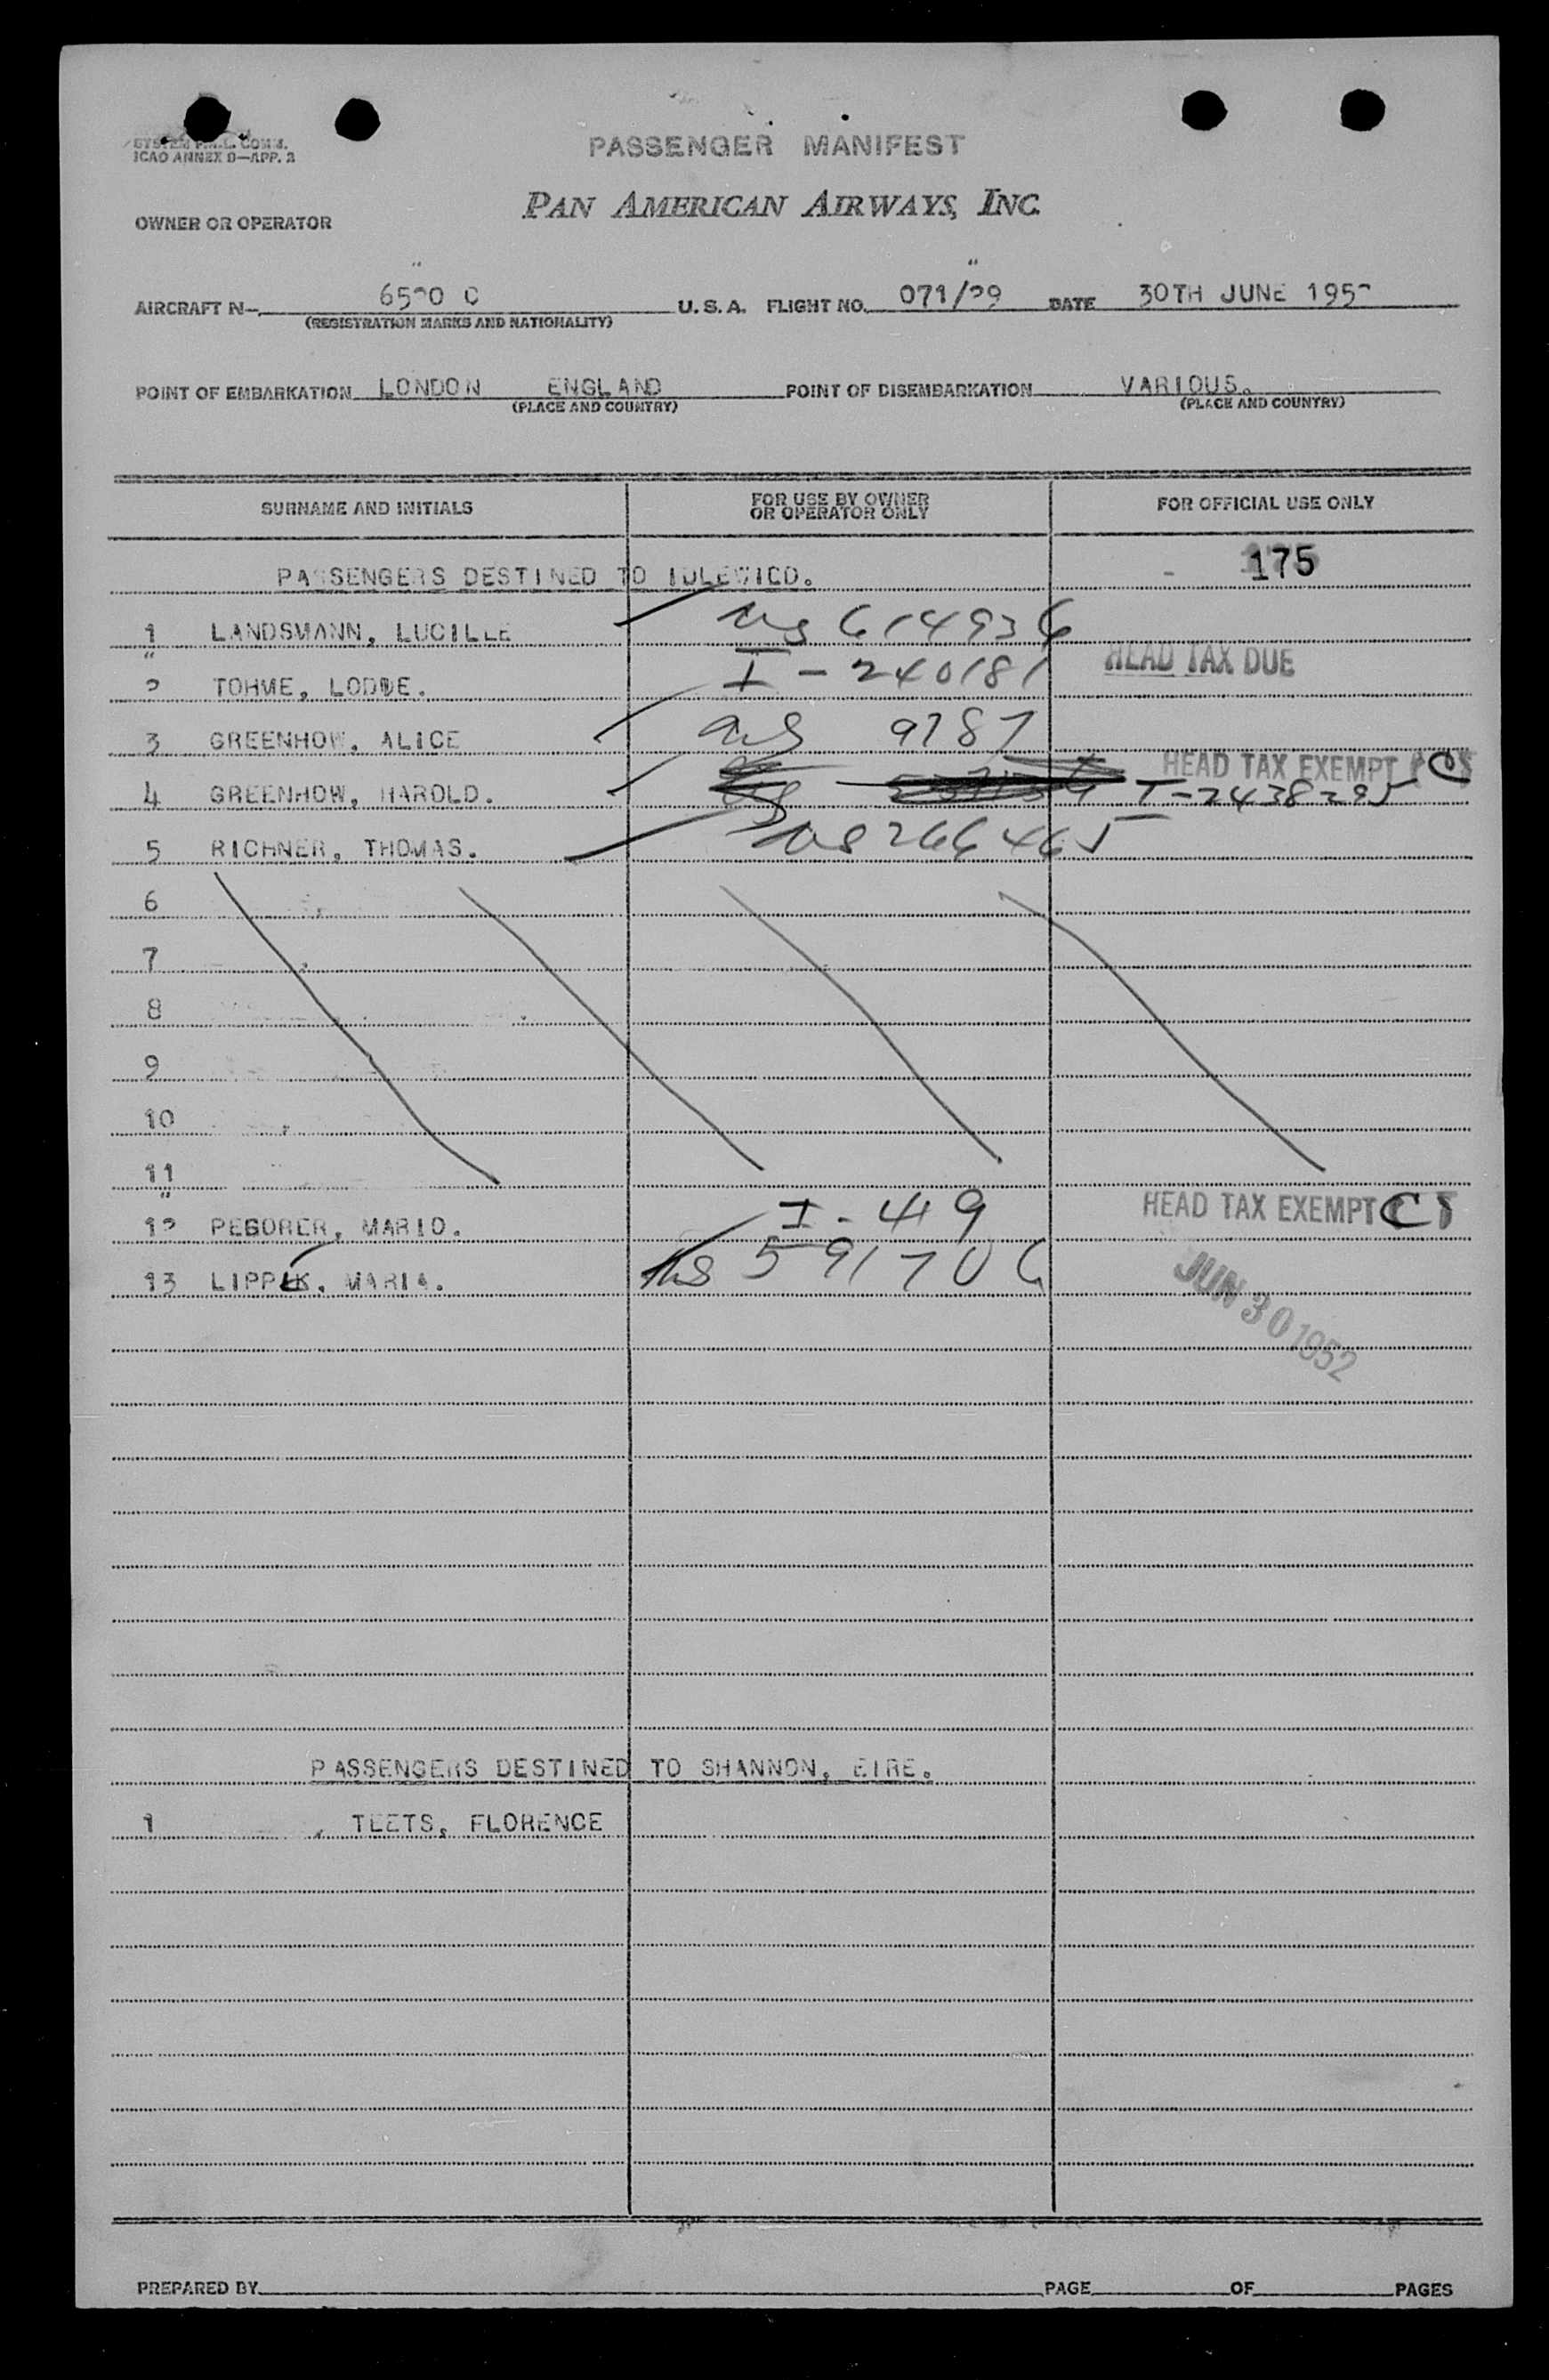 SYSTEM P.N.L. COMM.
ICAO ANNEX 9—APP. 3
PASSENGER MANIFEST
OWNER OR OPERATOR
PAN AMERICAN AIRWAYS, INC.
AIRCRAFT N- 6520 C U. S. A. FLIGHT NO. 071/29 DATE 30TH JUNE 1952
(REGISTRATION MARKS AND NATIONALITY)
POINT OF EMBARKATION LONDON ENGLAND POINT OF DISEMBARKATION VARIOUS.
(PLACE AND COUNTRY) (PLACE AND COUNTRY)
SURNAME AND INITIALS FOR USE BY OWNER OR OPERATOR ONLY FOR OFFICIAL USE ONLY
175
PASSENGERS DESTINED TO IDLEWILD.
1 LANDSMANN, LUCILLE us 614936
2 TOHME, I-240181 HEAD TAX DUE
3 GREENHOW, ALICE us 9787
HEAD TAX EXEMPT
4 GREENHOW, HAROLD. I-2438295
5 RICHNER, THOMAS. us 266465
6
7
8
9
10
11
12 PEGORER, MARIO. I-419 HEAD TAX EXEMPT
13 LIPPEK, MARIA. us 591706
JUN 30 1952
PASSENGERS DESTINED TO SHANNON, EIRE.
1 TEETS, FLORENCE
PREPARED BY PAGE OF PAGES